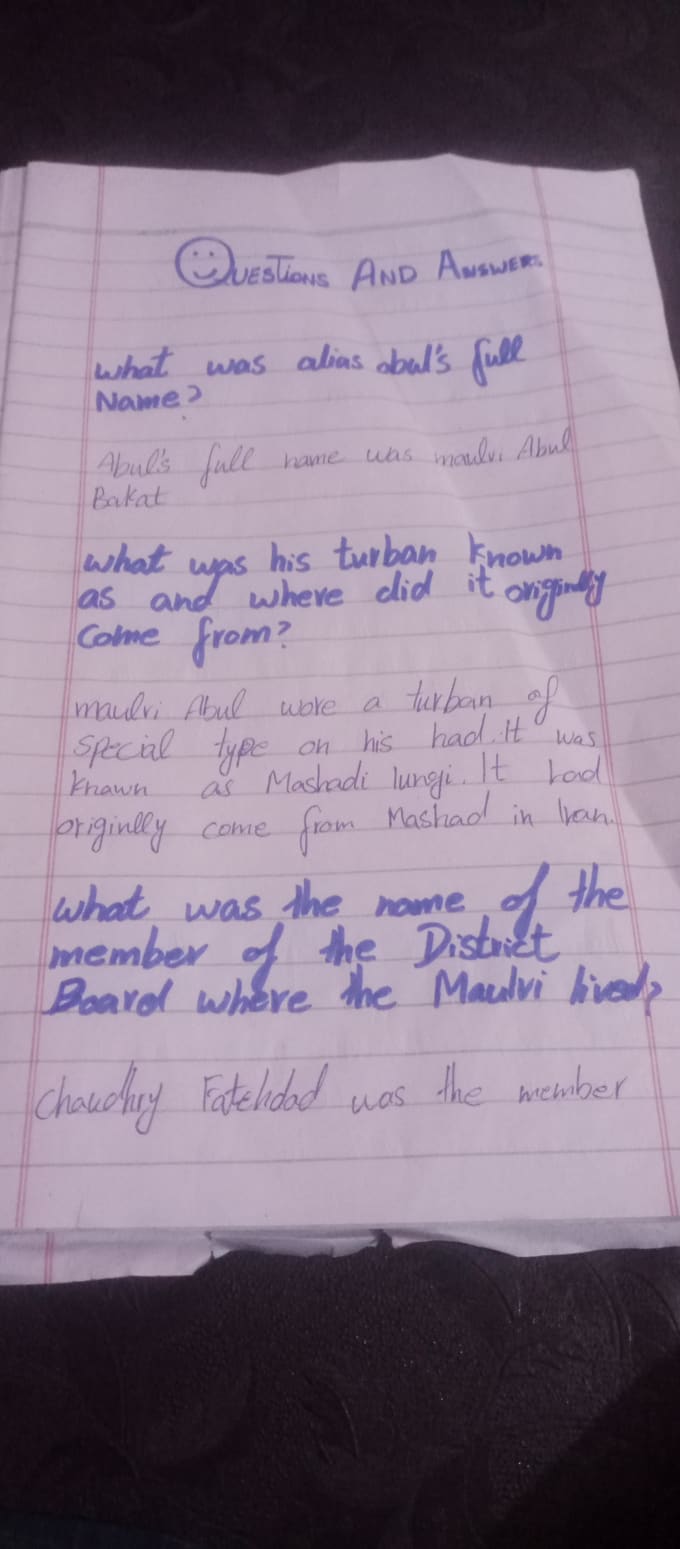 QUESTIONS AND ANSWERS
what was alias abul's full
Name?
Abul's full name was maulvi Abul
Bakat
what was his turban known
as and where did it originlly
come from?
maulvi Abul wore a turban of
special type on his had. It was
knawn as Mashadi lungi. It had
originlly come from Mashad in Iran.
what was the name of the
member of the District
Board where the Maulvi lived?
Chaudhry Fatehdad was the member